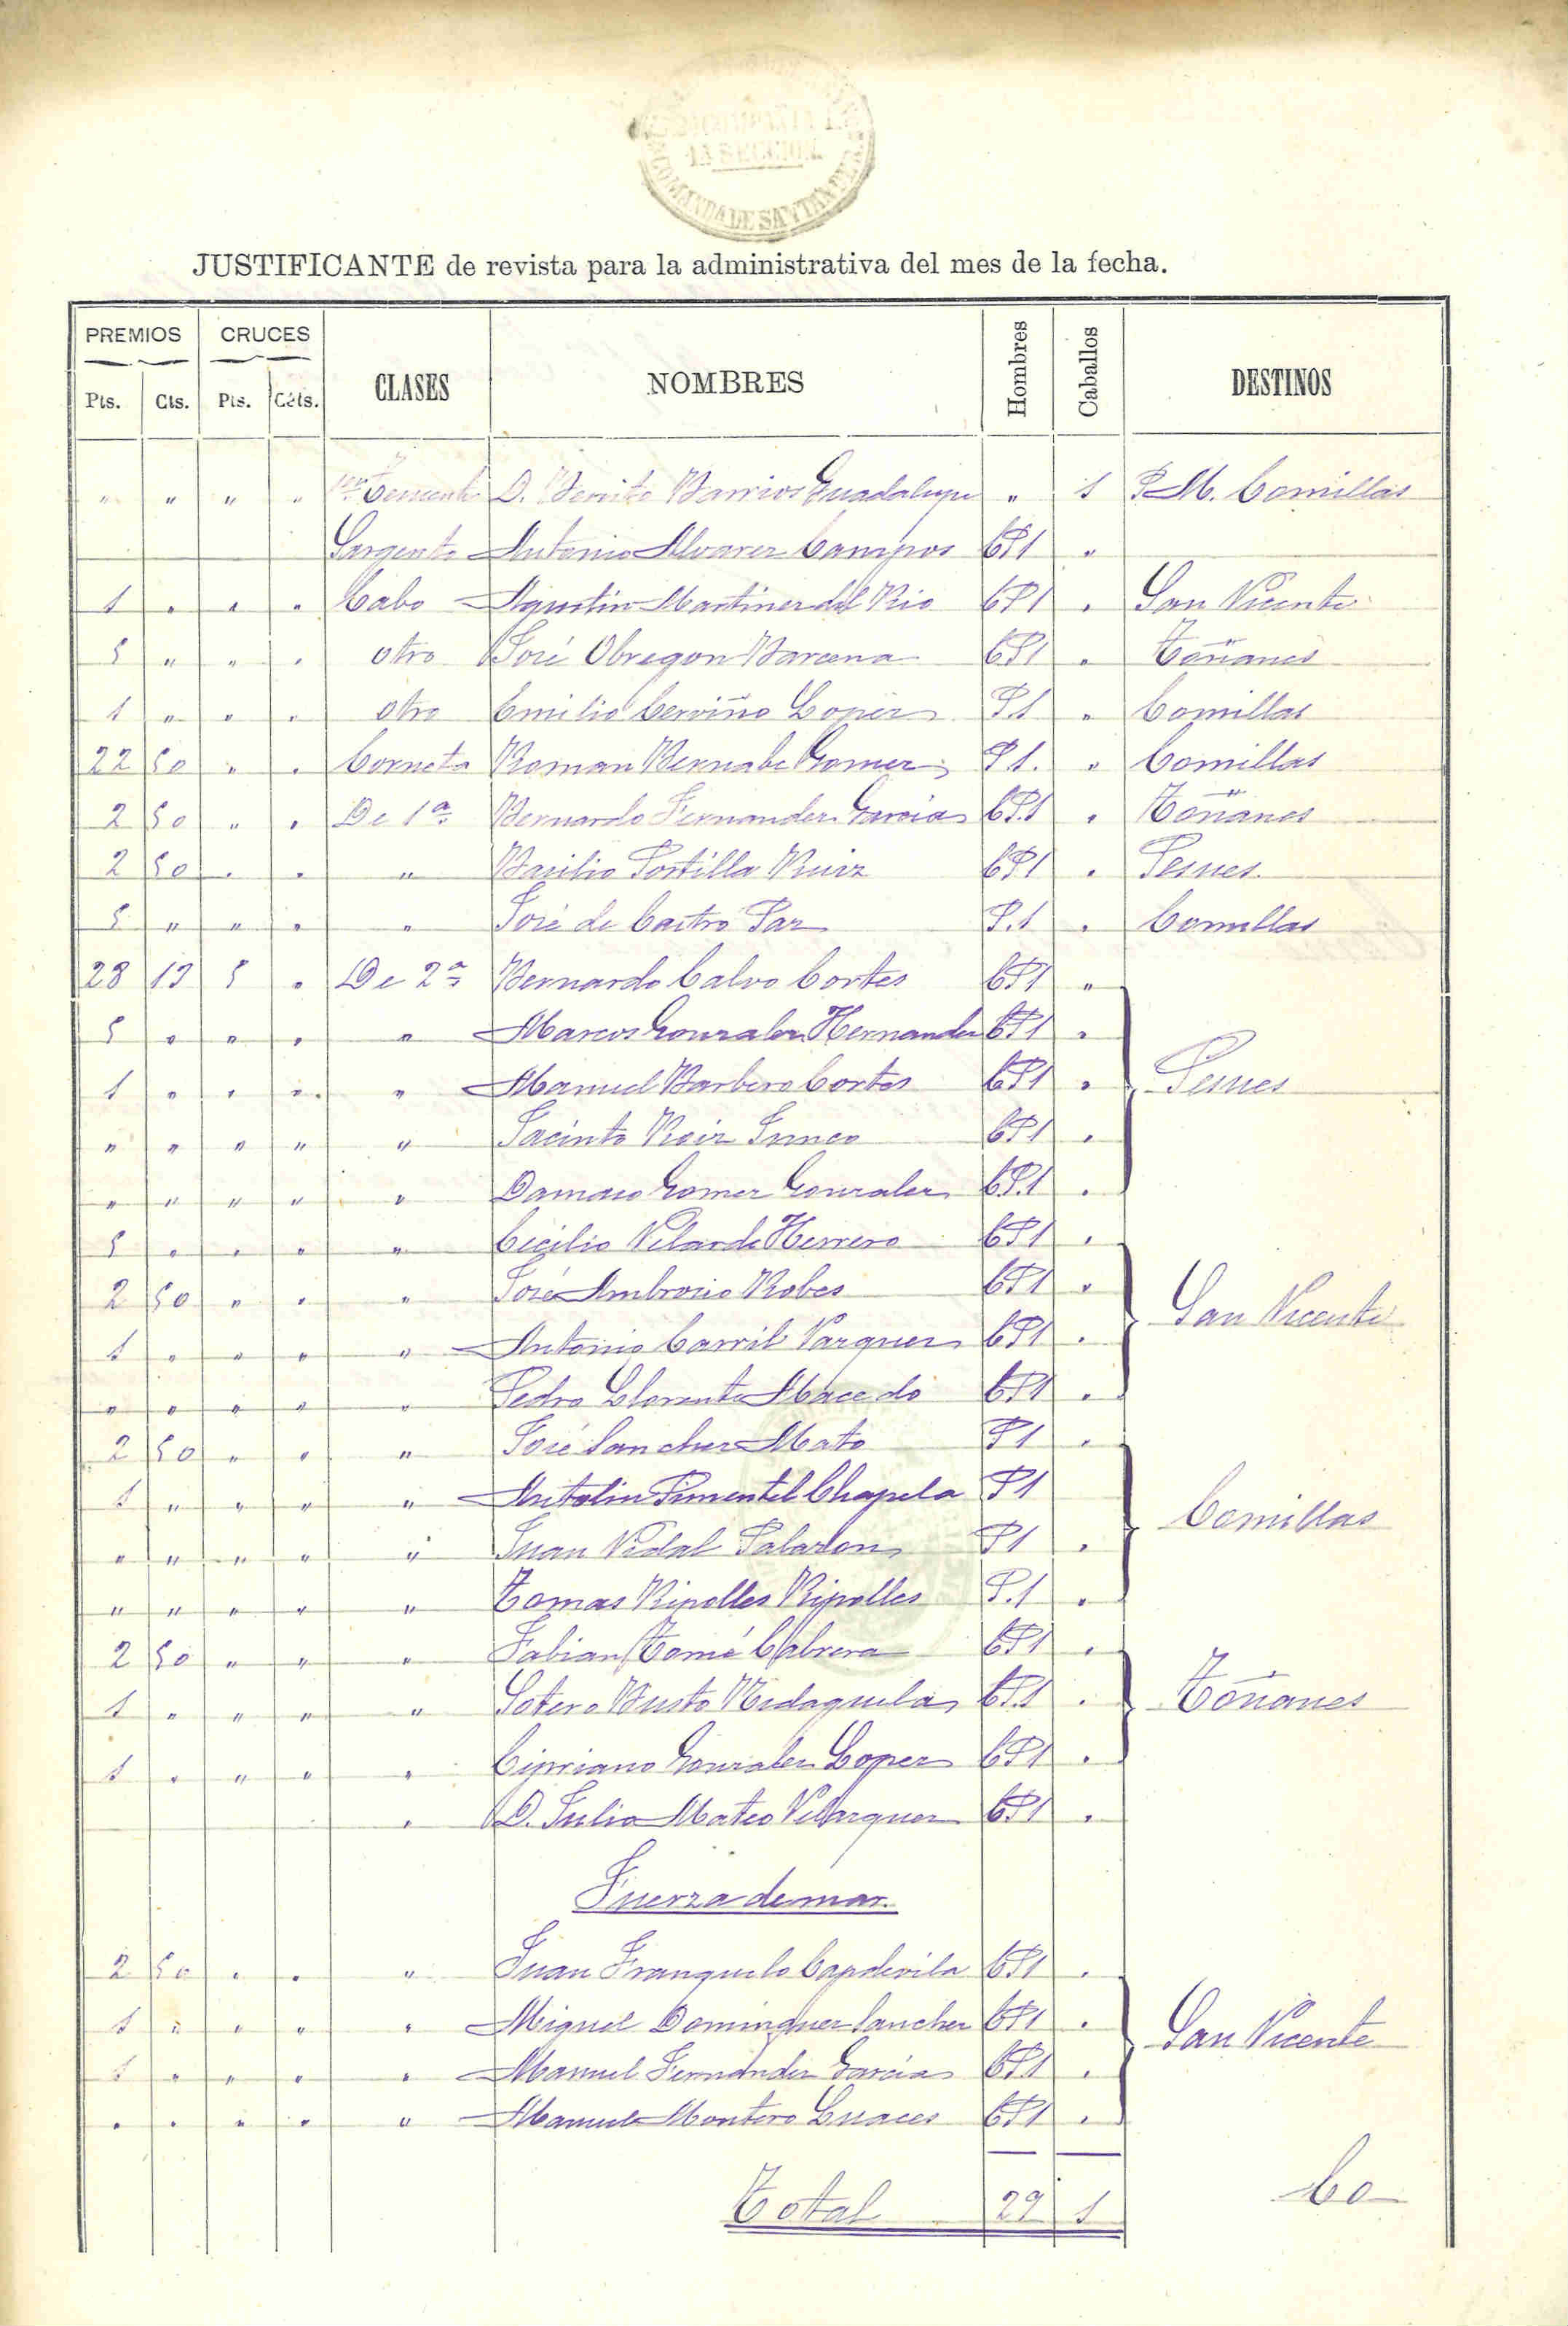 COMPAÑIA
1A SECCION
COMANDA DE SANTANDER
JUSTIFICANTE de revista para la administrativa del mes de la fecha.
PREMIOS CRUCES CLASES NOMBRES Hombres Caballos DESTINOS
Pts. Cts. Pts. Céts.
" " " " 1er Teniente D. Benito Barrios Guadalupe " 1 P.M. Comillas
Sargento Antonio Alvarez Campos CP1 "
1 " " " Cabo Agustin Martinez del Rio CP1 " San Vicente
5 " " " otro José Obregon Barcena CP1 " Toñanes
1 " " " otro Emilio Cerviño Lopez P1 " Comillas
22 50 " " Corneta Roman Bernabe Gomez P1. " Comillas
2 50 " " De 1ª Bernardo Fernandez Garcia CP.1 " Toñanes
2 50 " " " Basilio Portilla Ruiz CP1 " Pesues
5 " " " " José de Castro Paz P.1 " Comillas
28 13 5 " De 2ª Bernardo Calvo Cortes CP1 "
5 " " " " Marcos Gonzalez Hernandez CP1 "
1 " " " " Manuel Barbero Cortes CP1 " Pesues
" " " " " Jacinto Ruiz Junco CP1 "
" " " " " Damaso Gomez Gonzalez CP.1 "
5 " " " " Cecilio Velarde Herrero CP1 "
2 50 " " " José Ambrosio Robes CP1 " San Vicente
1 " " " " Antonio Carril Vazquez CP1 "
" " " " " Pedro Llorente Macedo CP1 "
2 50 " " " José Sanchez Mato P1 "
1 " " " " Antolin Pimentel Chapela P1 Comillas
" " " " " Juan Vidal P1 "
" " " " " Tomas Ripolles Ripolles P.1 "
2 50 " " " Fabian Tomé Cabrera CP1 "
1 " " " " Sotero Busto CP.1 " Toñanes
1 " " " " Cipriano Gonzalez Lopez CP1 "
" D. Julio Mateo Velazquez CP1 "
Fuerza de mar.
2 50 " " " Juan Franquelo Capdevila CP1 "
1 " " " " Miguel Dominguez Sanchez CP1 " San Vicente
1 " " " " Manuel Fernandez Garcia CP1 "
" " " " " Manuel Montero Luaces CP1 "
Total 29 1
Co